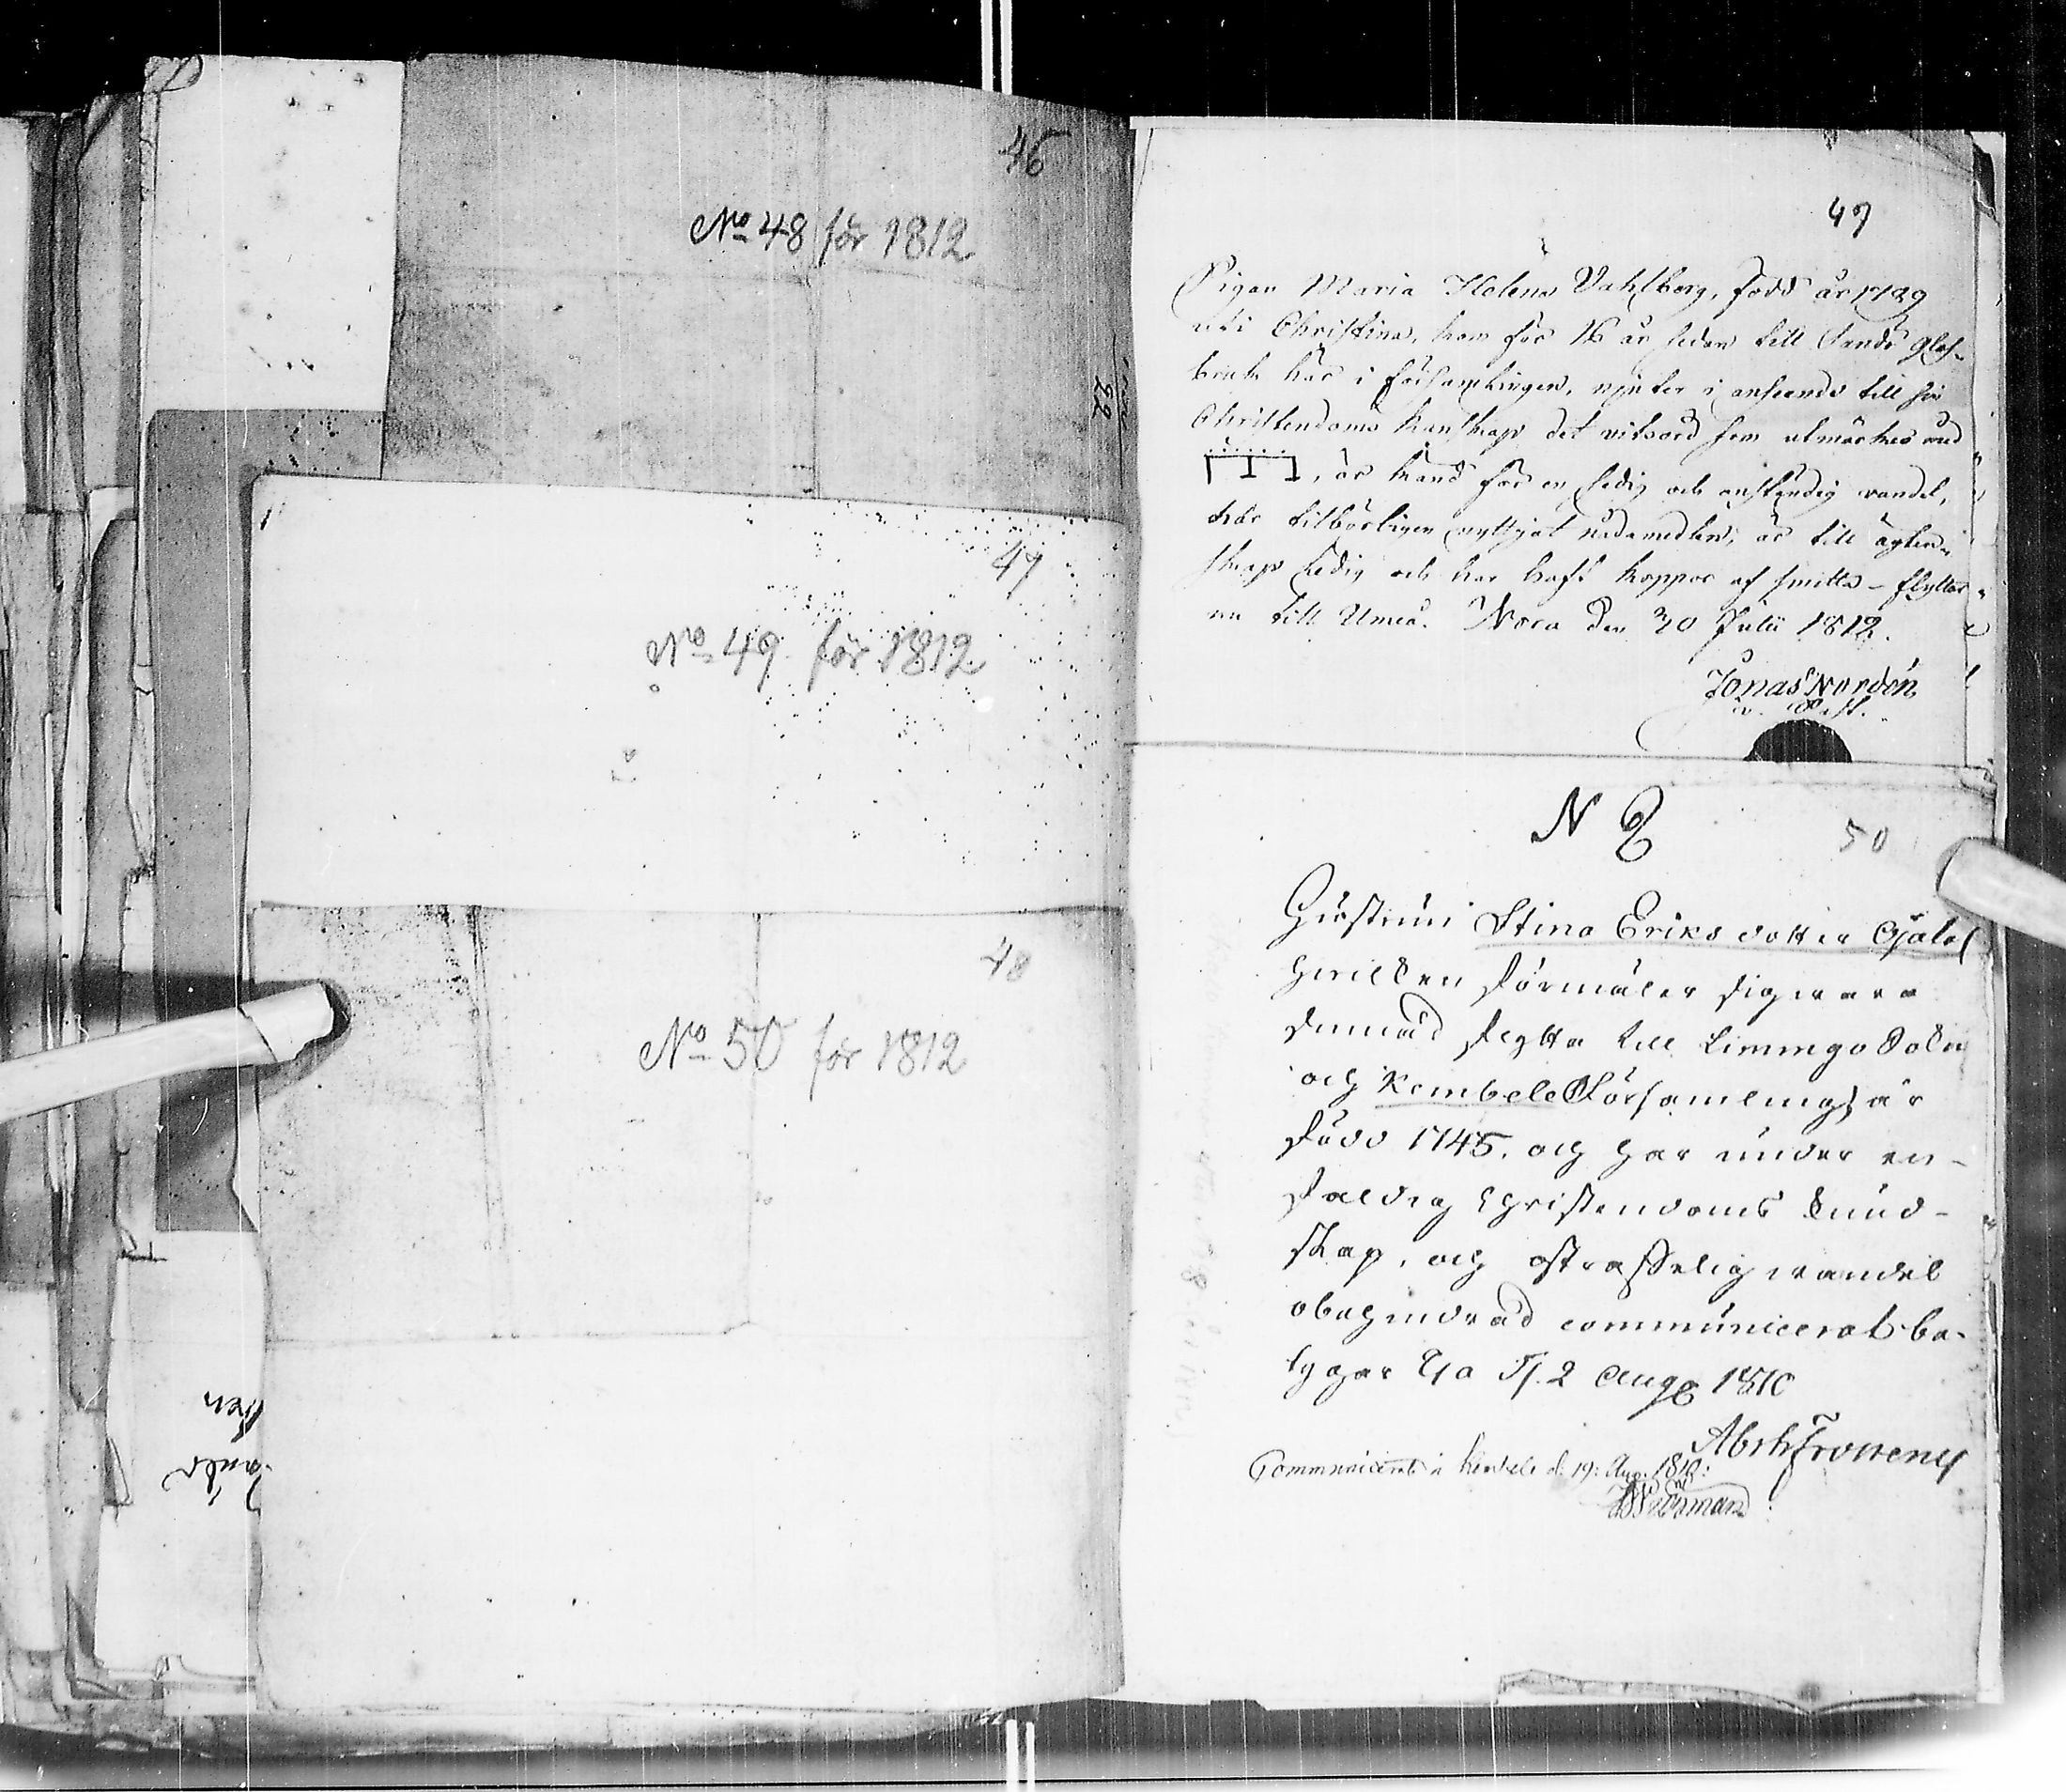 46
No 48 för 1812
47
No 49 för 1812
48
No 50 för 1812
22
47
Pigan Maria Helena Vahlberg, född år 1789
uti Christina, kom för 16 år sedan till Sandö glas-
bruk här i församlingen, njuter i anseende till sin
Christendoms kunskap det vitsord som utmärkes med
, är känd för en sedig och anständig vandel,
har tilbörligen nyttjat nådemedlen; är till ägten-
skap ledig och har haft koppor af smitta – flyttar
nu till Umeå. Nora den 30 Julii 1812.
Jonas Nordén
v. Past.
N 2
50
Hustrun Stina Eriks dotter
hvilken förmäler sig vara
sinnad flytta till Limingo Sokn
och Kembele Församling, är
född 1745. och har under en-
faldig Christendoms kund-
skap, och ostraffelig wandel
obehindrad communicerat be-
tygar 2 Aug 1810
Communicerat i Kembele d: 19: Aug. 1810: